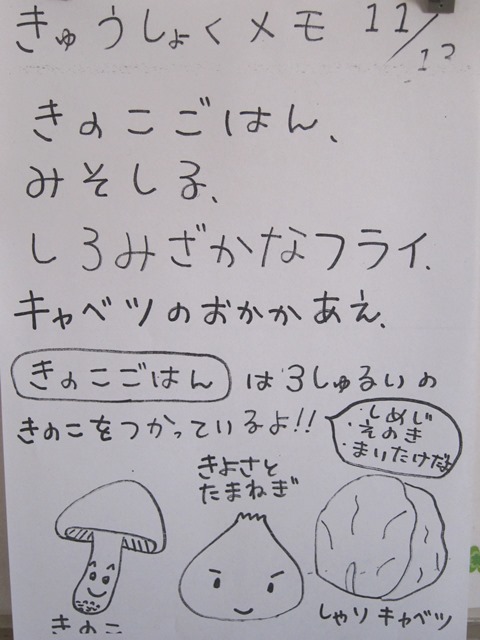 きゅうしょくメモ 11/12
きのこごはん、
みそしる、
しろみざかなフライ、
キャベツのおかかあえ、
きのこごはん は3しゅるいの
きのこをつかっているよ!!
・しめじ
・えのき
・まいたけだよ
きよさと
たまねぎ
きのこ
しゃり キャベツ